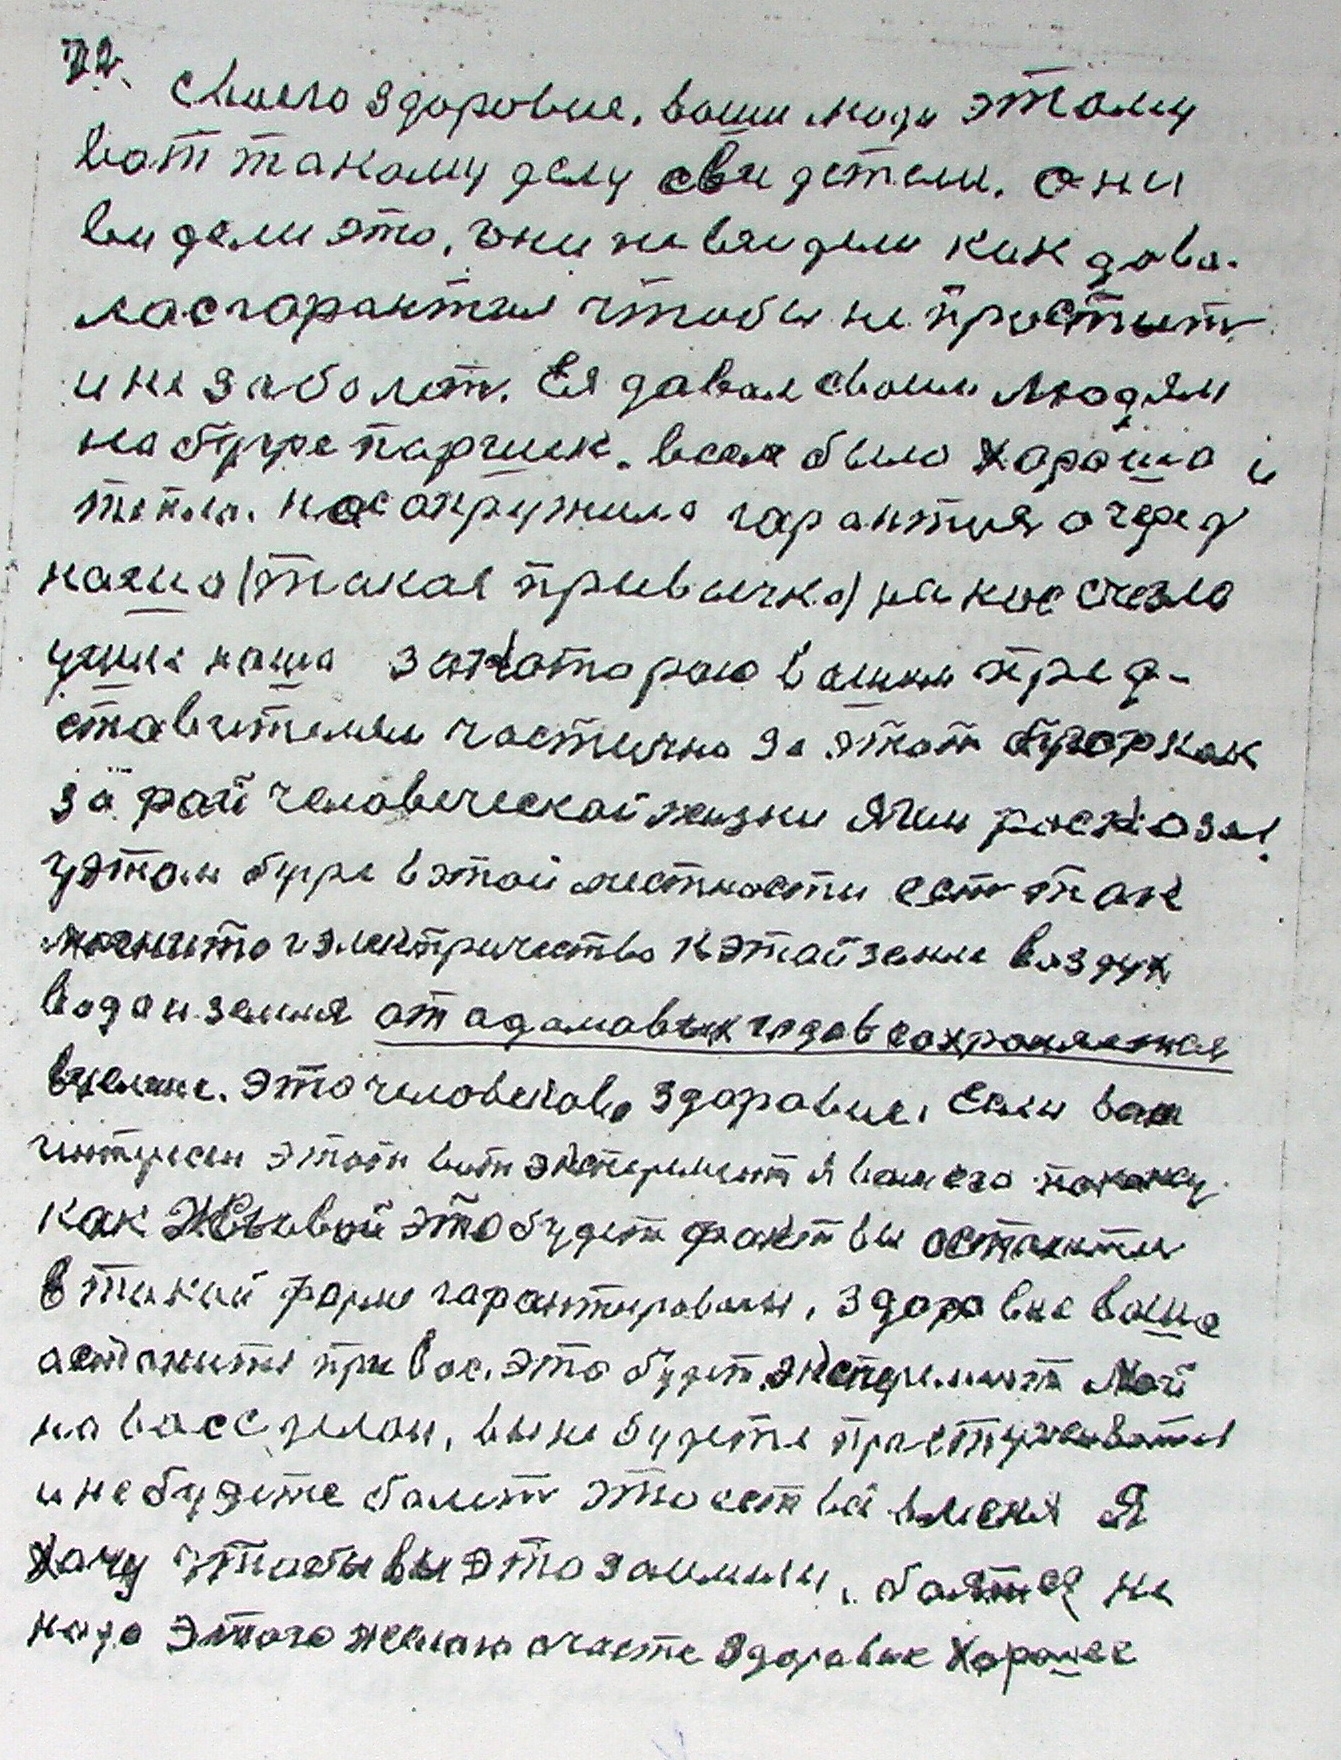 72.
своего здоровия, ваши люди этому
вот такому делу свидетели. они
видели это, они не видели как дова-
лас гарантия чтобы не простыт
и не заболет. Ея давал своим людям
на бугре паргиек. всем было хорошо и
тепло. нас окружила гарантия очеред
наяша (такая привычка) у нас счезло
наша за которою вашим пред-
ставителям частично за этот бугор как
за рай человеческой жизни я им росказал
у этом бугре в этой местности ест так
магнито и электричество к этой земле воздух
вода и земля от адамавых годов сохроняется
в целине. это человеково здоровие. Если вам
интересен этот вот эксперемент я вам его покажу
как живой это будет факт вы останити
в такой форме гарантированы, здоровие ваше
астанитя при вас. это будет эксперемент мой
на васс делан, вы не будете простуживатся
и не будете болет это ест всё в меня Я
хочу чтобы вы это заимили, боятся не
надо этого желаю счасте здоровие хорошее